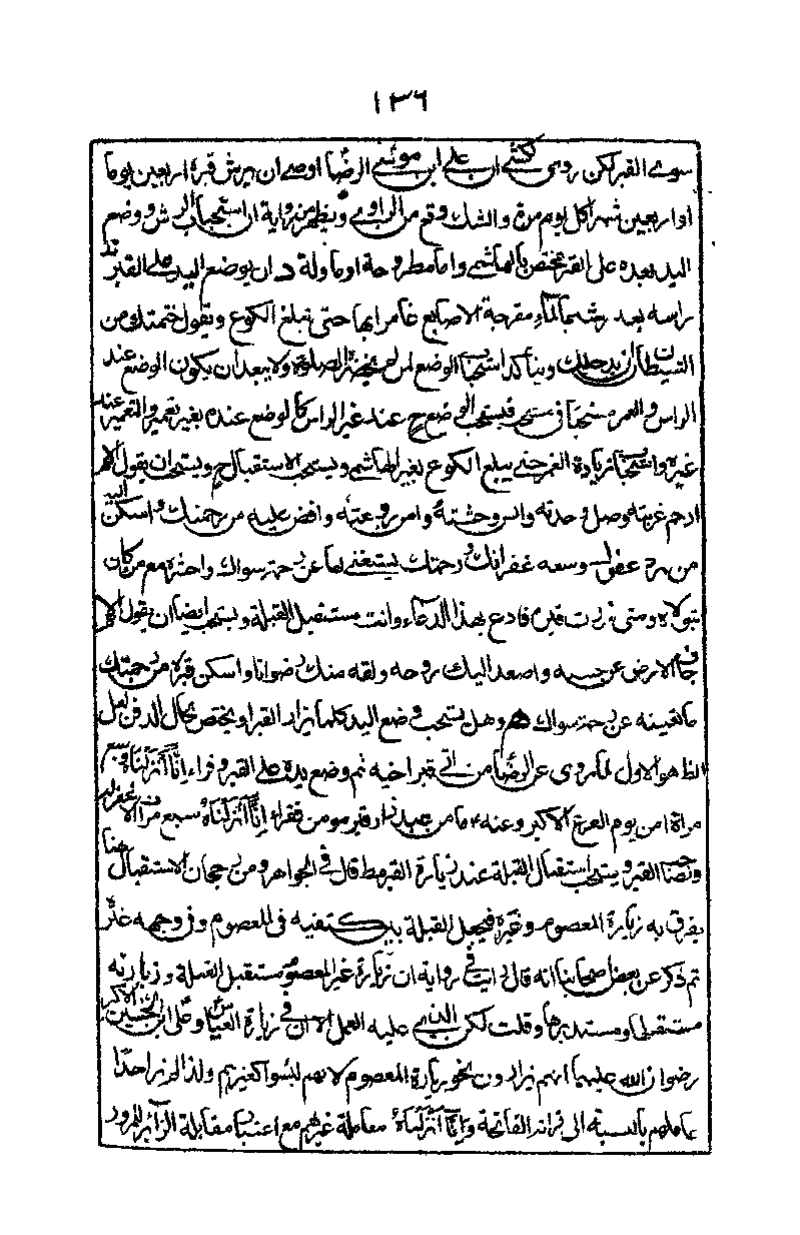 ١٣٦
سوى القبر لكن روى كشى ان على ابن موسى الرضا اوصى ان يرش قبره اربعين يوما
او اربعين شهرا كل يوم مرة والشك وقع من الراوى ويظهر من رواية ان استحباب الرش ووضع
اليد بعده على القبر مختص بالهاشمى واما مطروحة او ماولة د ان يوضع اليد على القبر عند
راسه بعد رشه بالماء مفرجة الاصابع غامرا بها حتى تبلغ الكوع وتقول ختمتك من
الشيطان ان يدخلك ويتأكد استحباب الوضع لمن لم يحضر الصلوة ولا يبعد ان يكون الوضع عند
الراس والغمر مستحبا فى مستحب فيستحب الوضع ح عند غير الراس كالوضع عنده بغير تغمير والتغمير عند
غيره واستحباب زيادة الغمر حتى يبلغ الكوع بغير الهاشمى ويستحب الاستقبال ح ويستحب ان يقول اللهم
ارحم غربته وصل وحدته وانس وحشته وامن روعته وافض عليه من رحمتك واسكن اليه
من برد عفوك وسعة غفرانك ورحمتك يستغنى بها عن رحمة سواك واحشره مع من كان
يتولاه ومتى زرت قبره فادع بهذا الدعاء وانت مستقبل القبلة ويستحب ايضا ان يقول اللهم
جاف الارض عن جنبيه واصعد اليك روحه ولقه منك رضوانا واسكن قبره من رحمتك
ما تغنيه عن رحمة سواك وهل يستحب وضع اليد كلما يزار القبر او يختص بحال الدفن لعل
الظ هو الاول لما روى عن الرضا من اتى قبر اخيه ثم وضع يده على القبر وقراء إِنَّا أَنْزَلْنَاهُ سبع
مراة امن يوم الفزع الاكبر وعنه ما من عبد زار قبر مومن فقراء إِنَّا أَنْزَلْنَاهُ سبع مرات الا غفر له
وصاحب القبر ويستحب استقبال القبلة عند زيارة القبر مط قال فى الجواهر ومن رجحان الاستقبال هنا
يفرق به زيارة المعصوم وغيره فيجعل القبلة بين كتفيه فى المعصوم وفى وجهه غيره
ثم ذكر عن بعض اصحابنا انه قال رايت فى رواية ان زيارة غير المعصوم مستقبل القبلة وزيارته
مستقبل او مستدبرها وقلت لكن الذى عليه العمل الان فى زيارة العباس وعلى ابن الحسين الاكبر
رضوان الله عليهما انهم يزارون بنحو زيارة المعصوم لانهم ليسوا كغيرهم ولذا لم نر احدا
عاملهم بالنسبة الى قرائة الفاتحة وإِنَّا أَنْزَلْنَاهُ معاملة غيرهم مع اعتبار مقابلة الزائر للمزور